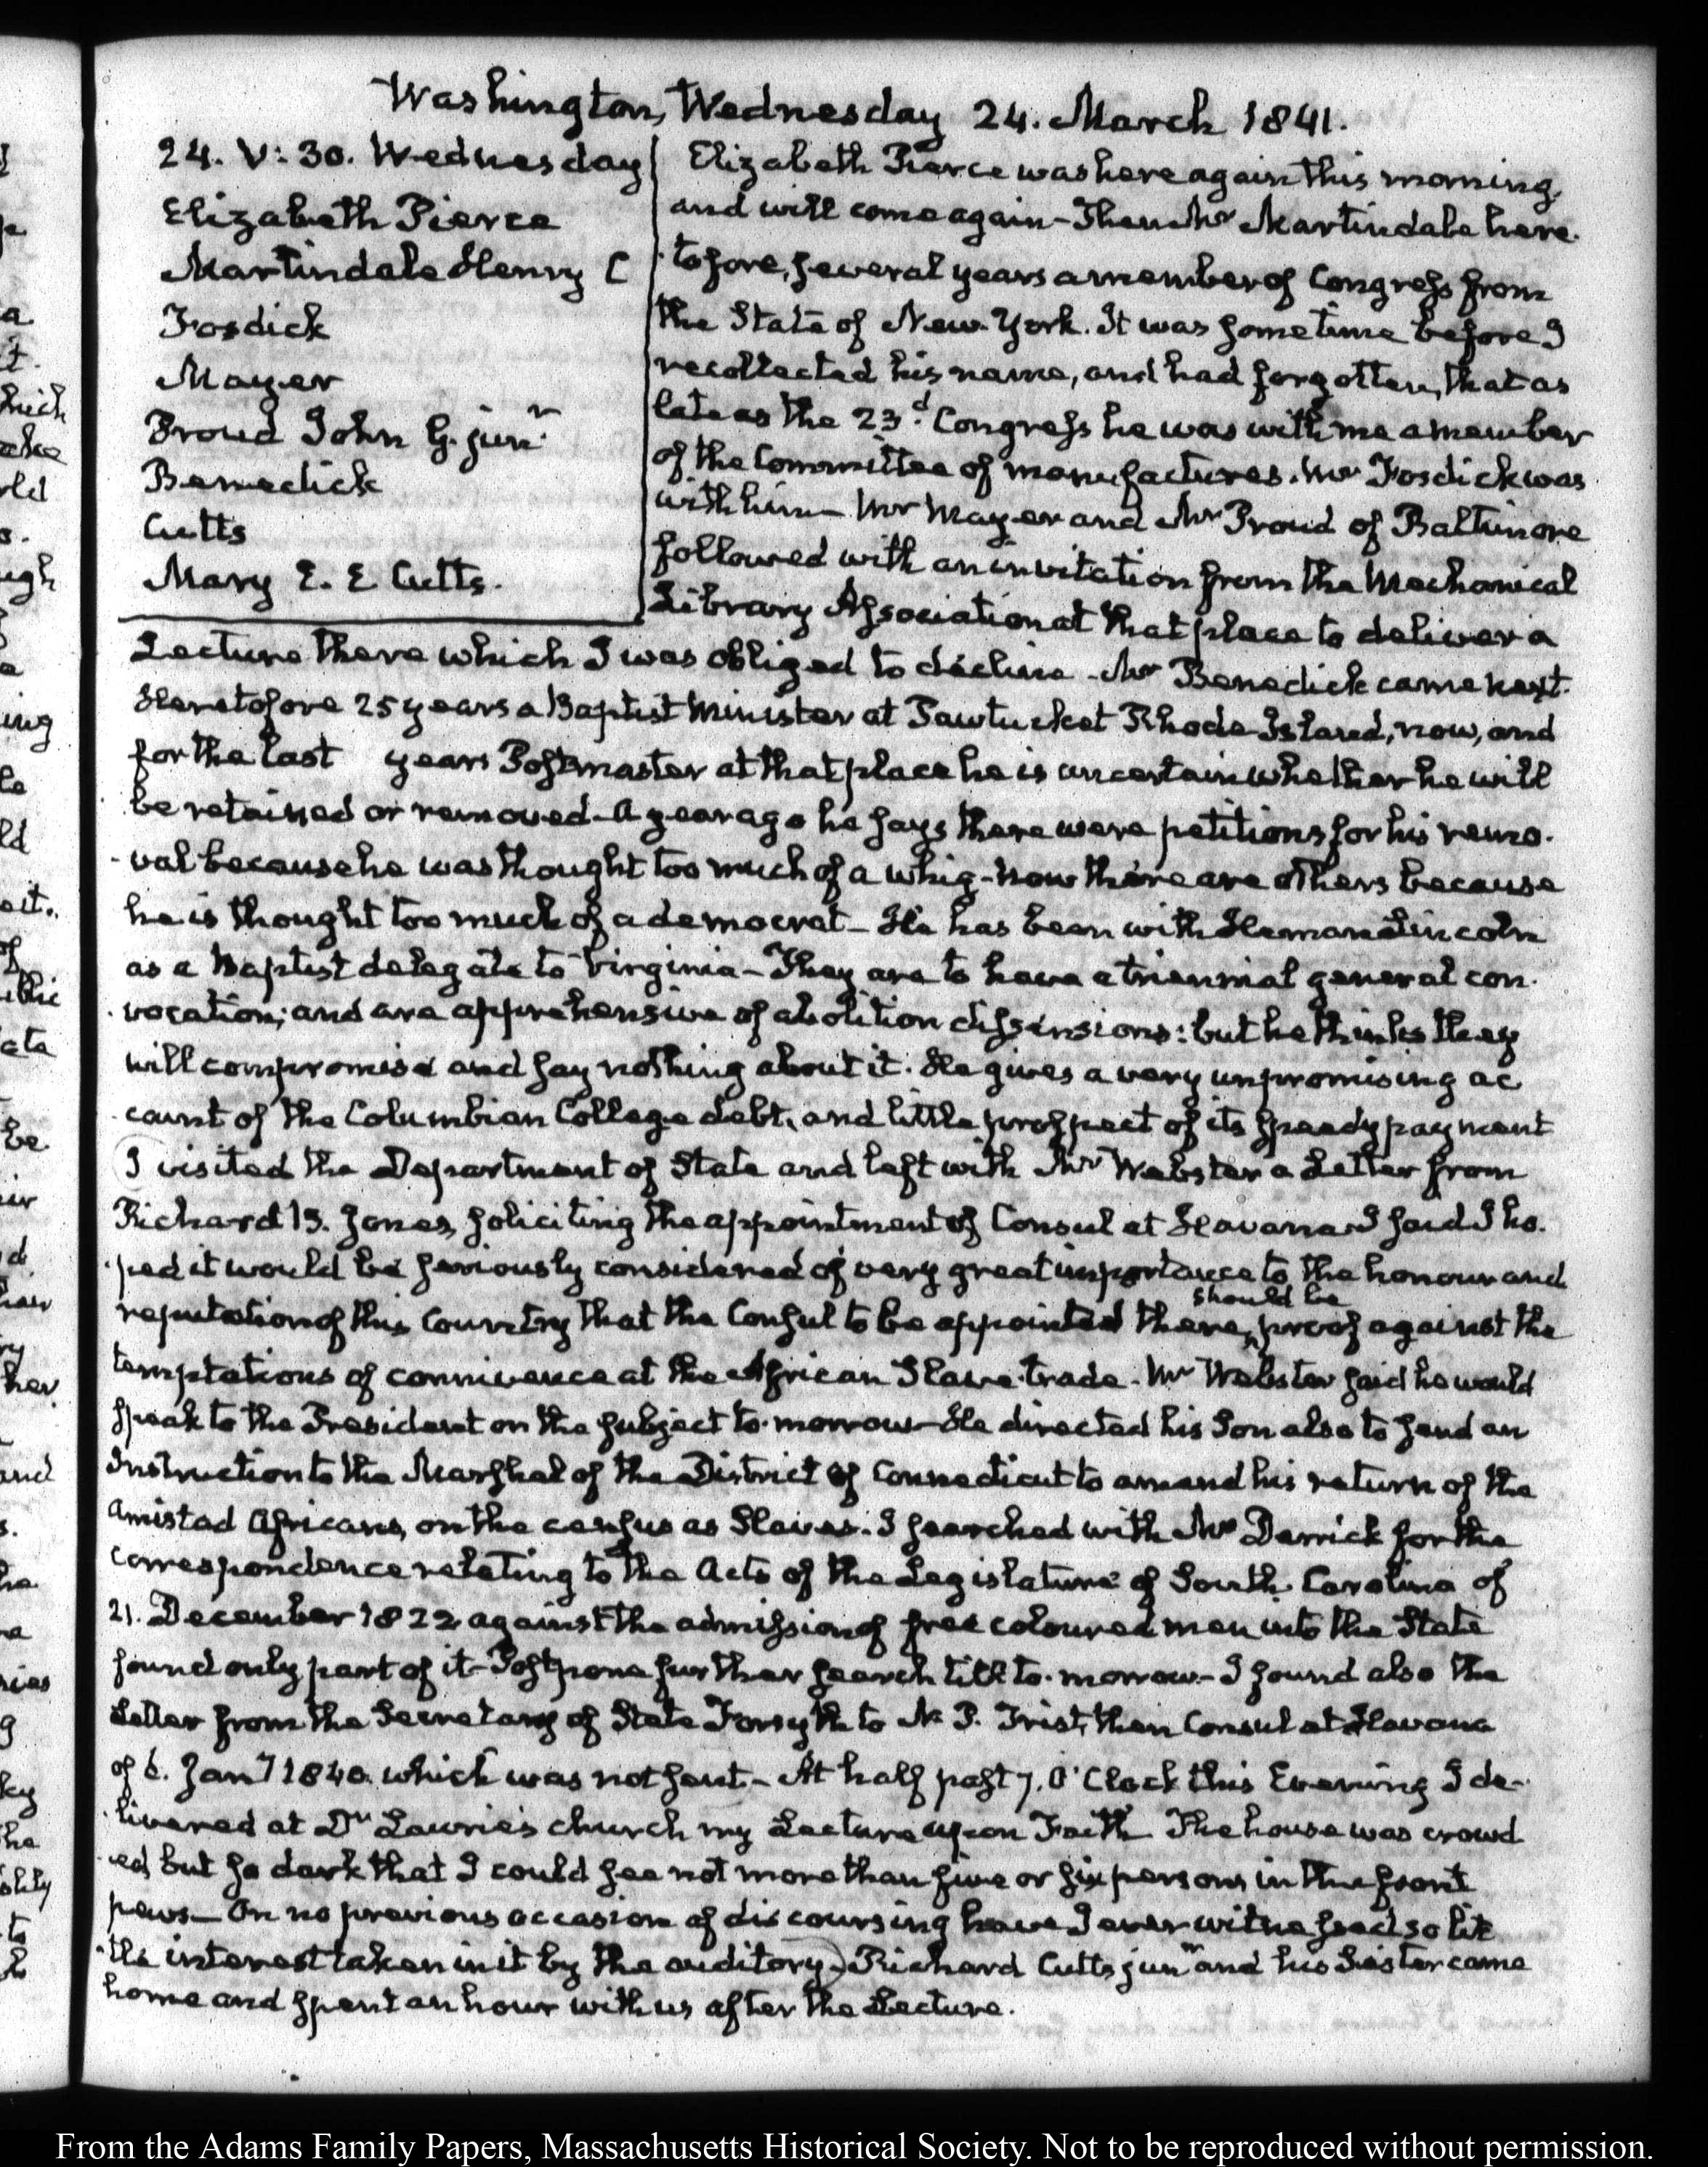 Washington, Wednesday 24. March 1841.
24. V: 30. Wednesday
Elizabeth Pierce
Martindale Henry C
Fosdick
Mayer
Proud John G. junr.
Benedick
Cutts
Mary E. E Cutts.
Elizabeth Pierce was here again this morning,
and will come again - Then Mr Martindale here-
-tofore, several years a member of Congress from
the State of New-York. It was some time before I
recollected his name, and had forgotten, that as
late as the 23d. Congress he was with me a member
of the Committee of manufactures. Mr Fosdick was
with him - Mr Mayer and Mr Proud of Baltimore
followed with an invitation from the Mechanical
Library Association at that place to deliver a
Lecture there which I was obliged to decline - Mr Benedick came next.
Heretofore 25 years a Baptist Minister at Pawtucket Rhode-Island, now, and
for the last years Postmaster at that place he is uncertain whether he will
be retained or removed - A year ago he says there were petitions for his remo-
-val because he was thought too much of a whig - now there are others because
he is thought too much of a democrat - He has been with Heman Lincoln
as a Baptist delegate to Virginia - They are to have a triennial general con-
-vocation; and are apprehensive of abolition dissensions: but he thinks they
will compromise and say nothing about it. He gives a very unpromising ac
-count of the Columbian College debt, and little prospect of its speedy payment
I visited the Department of State and left with Mr Webster a Letter from
Richard B. Jones, soliciting the appointment of Consul at Havana - I said I ho-
-ped it would be seriously considered of very great importance to the honour and
reputation of this Country that the Consul to be appointed there, should be proof against the
temptations of connivance at the African Slave-trade - Mr Webster said he would
speak to the President on the subject to-morrow - He directed his Son also to send an
Instruction to the Marshal of the District of Connecticut to amend his return of the
Amistad Africans, on the census as Slaves. I searched with Mr Derrick for the
correspondence relating to the Acts of the Legislature of South Carolina of
21. December 1822 against the admission of free coloured men into the State
found only part of it - Postpone further search till to-morrow - I found also the
Letter from the Secretary of State Forsyth to N. P. Trist, then Consul at Havana
of 6. Jany 1840. which was not sent - At half past 7. O'Clock this Evening I de-
-livered at Dr Laurie's church my Lecture upon Faith. The house was crowd
-ed, but so dark that I could see not more than five or six persons in the front
pews - On no previous occasion of discoursing have I ever witnessed so lit
-tle interest taken in it by the auditory) Richard Cutts junr and his Sister came
home and spent an hour with us after the Lecture.
From the Adams Family Papers, Massachusetts Historical Society. Not to be reproduced without permission.